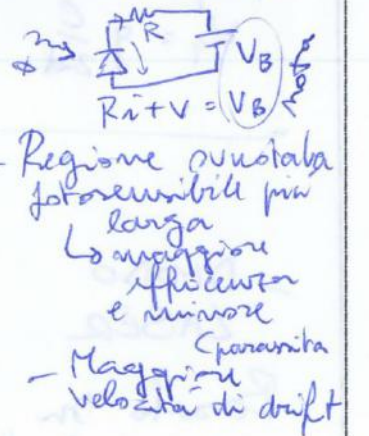 R
V_B
Ri + V = V_B
- Regione svuotata
fotosensibile più
larga
↳ maggiore
efficienza
e minore
C parassita
- Maggiore
velocità di drift